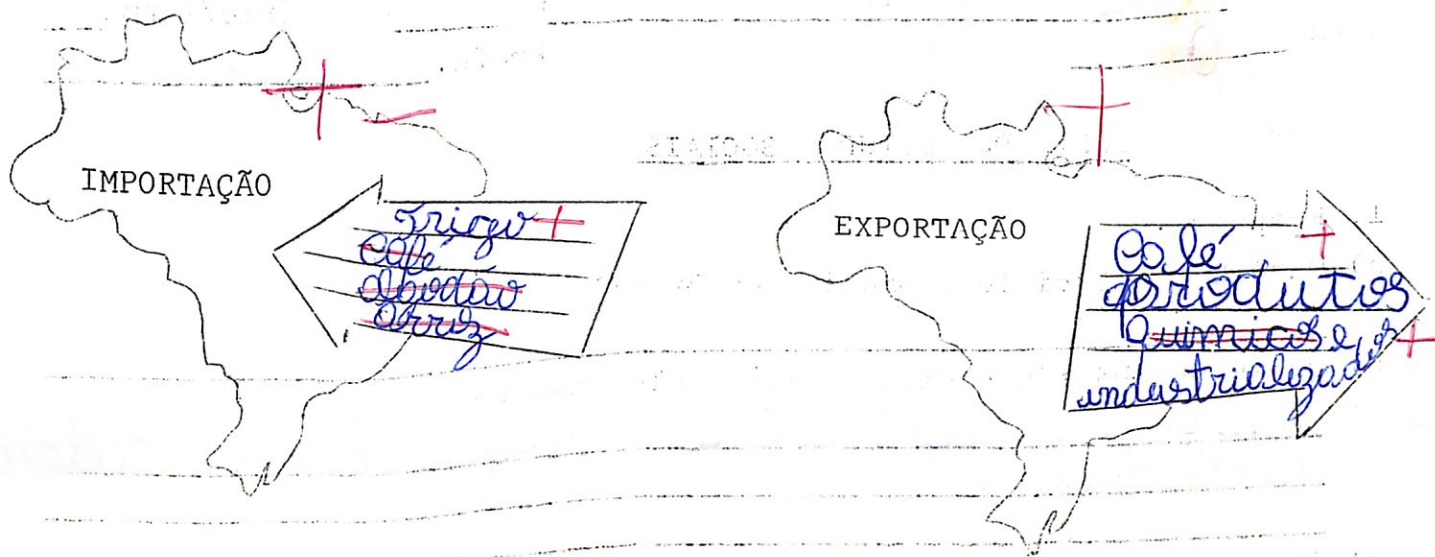 IMPORTAÇÃO
Trigo +
Café
Algodão
Arroz
EXPORTAÇÃO
Café +
produtos
químicos e
industrializados +